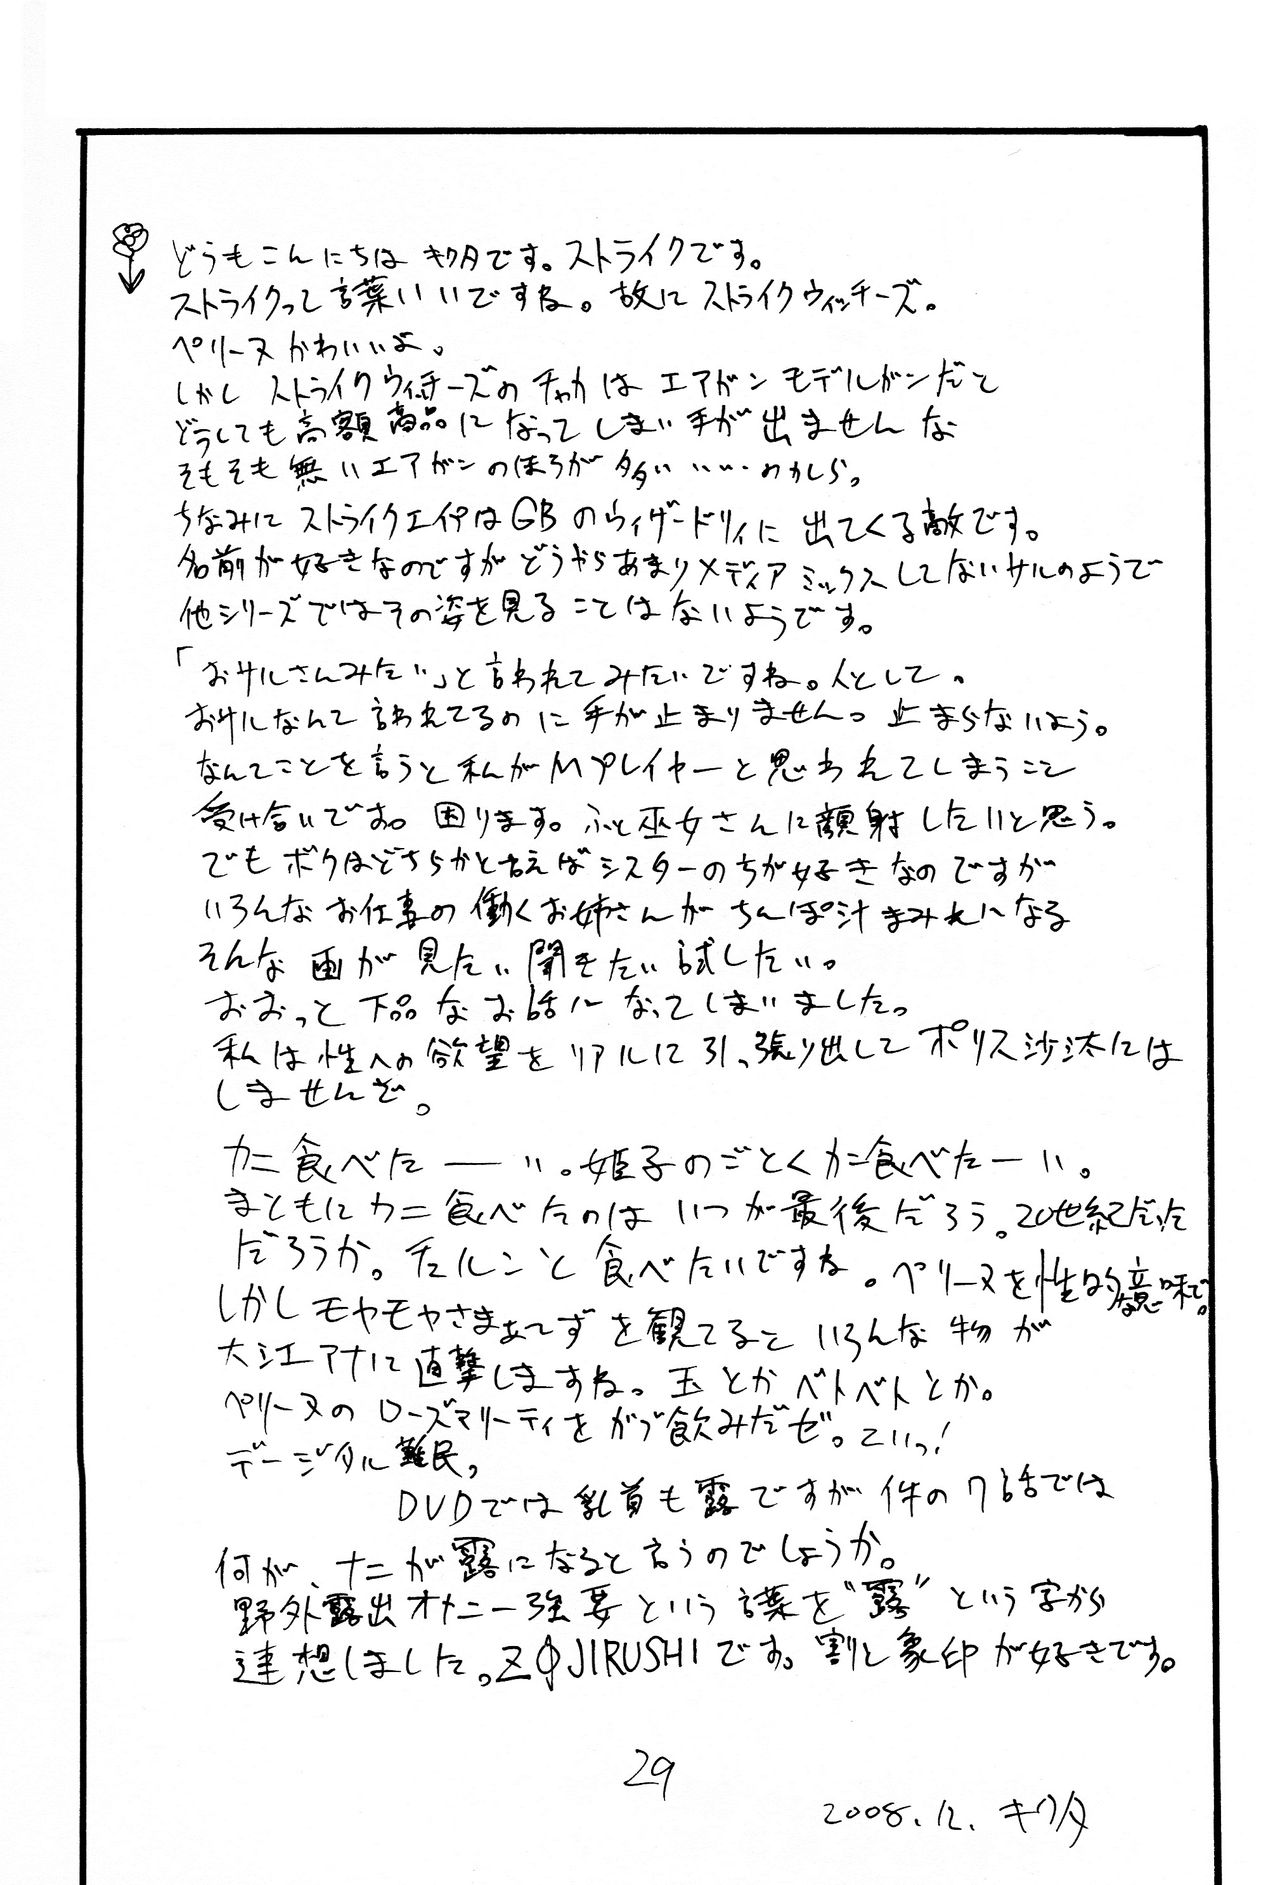 どうもこんにちは キクタです。ストライクです。
ストライクって言葉いいですね。故にストライクウィッチーズ。
ペリーヌかわいいよ。
しかしストライクウィッチーズのチャカはエアガンモデルガンだと
どうしても高額商品になってしまい手が出ませんな
そもそも無いエアガンのほうが多い……かしら。
ちなみにストライクエイプはGBのウィザードリィに出てくる敵です。
名前が好きなのですがどうやらあまりメディアミックスしてないサルのようで
他シリーズではその姿を見ることはないようです。
「おサルさんみたい」と言われてみたいですね。人として。
おサルなんて言われてるのに手が止まりません。止まらないよう。
なんてことを言うと私がMプレイヤーと思われてしまうこと
受け合いです。困ります。ふと巫女さんに顔射したいと思う。
でもボクはどちらかと言えばシスターのちが好きなのですが
いろんなお仕事の働くお姉さんがちんぽ汁まみれになる
そんな画が見たい聞きたい試したい。
おおっと下品なお話になってしまいました。
私は性への欲望をリアルに引っ張り出してポリス沙汰には
しませんぞ。
カニ食べたーい。姫子のごとくカニ食べたーい。
まともにカニ食べたのはいつが最後だろう。20世紀だった
だろうか。チュルンと食べたいですね。ペリーヌを性的な意味で。
しかしモヤモヤさまぁ〜ずを観てるといろんな物が
大江アナに直撃しますね。玉とかベトベトとか。
ペリーヌのローズマリーティをがブ飲みだゼ。こいっ!
デージタル難民。
DVDでは乳首も露ですが件の7話では
何が、ナニが露になると言うのでしょうか。
野外露出オナニー強要という言葉を"露"という字から
連想しました。ZØJIRUSHIです。割と象印が好きです。
29
2008.12. キクタ